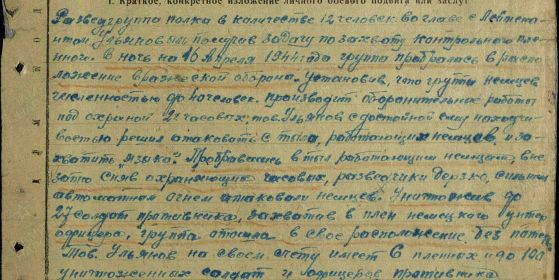 I. Краткое, конкретное изложение личного боевого подвига или заслуг
Разведгруппа полка в количестве 12 человек во главе с Лейтена-
нтом Ульяновым получив задачу по захвату контрольного плен-
ного. В ночь на 16 Апреля 1944 года группа пробралась в распо-
ложение вражеской обороны. Установив, что группа немцев
численностью до человек. производит оборонительные работы
под охраной часовых, тов. Ульянов с достойной ему находчи-
востью решил атаковать с тыла, работающих немцев, и за-
хватить "языка". Пробравшись в тыл работающим немцам, вне-
запно сняв охраняющих часовых, разведчики дерзко, сильным
автоматным огнем атаковали немцев. Уничтожив до
27 солдат противника, захватив в плен немецкого унтер
офицера, группа отошла в свое расположение без потерь
Тов. Ульянов на своем счету имеет 6 пленных и до 100
уничтоженных солдат и офицеров противника